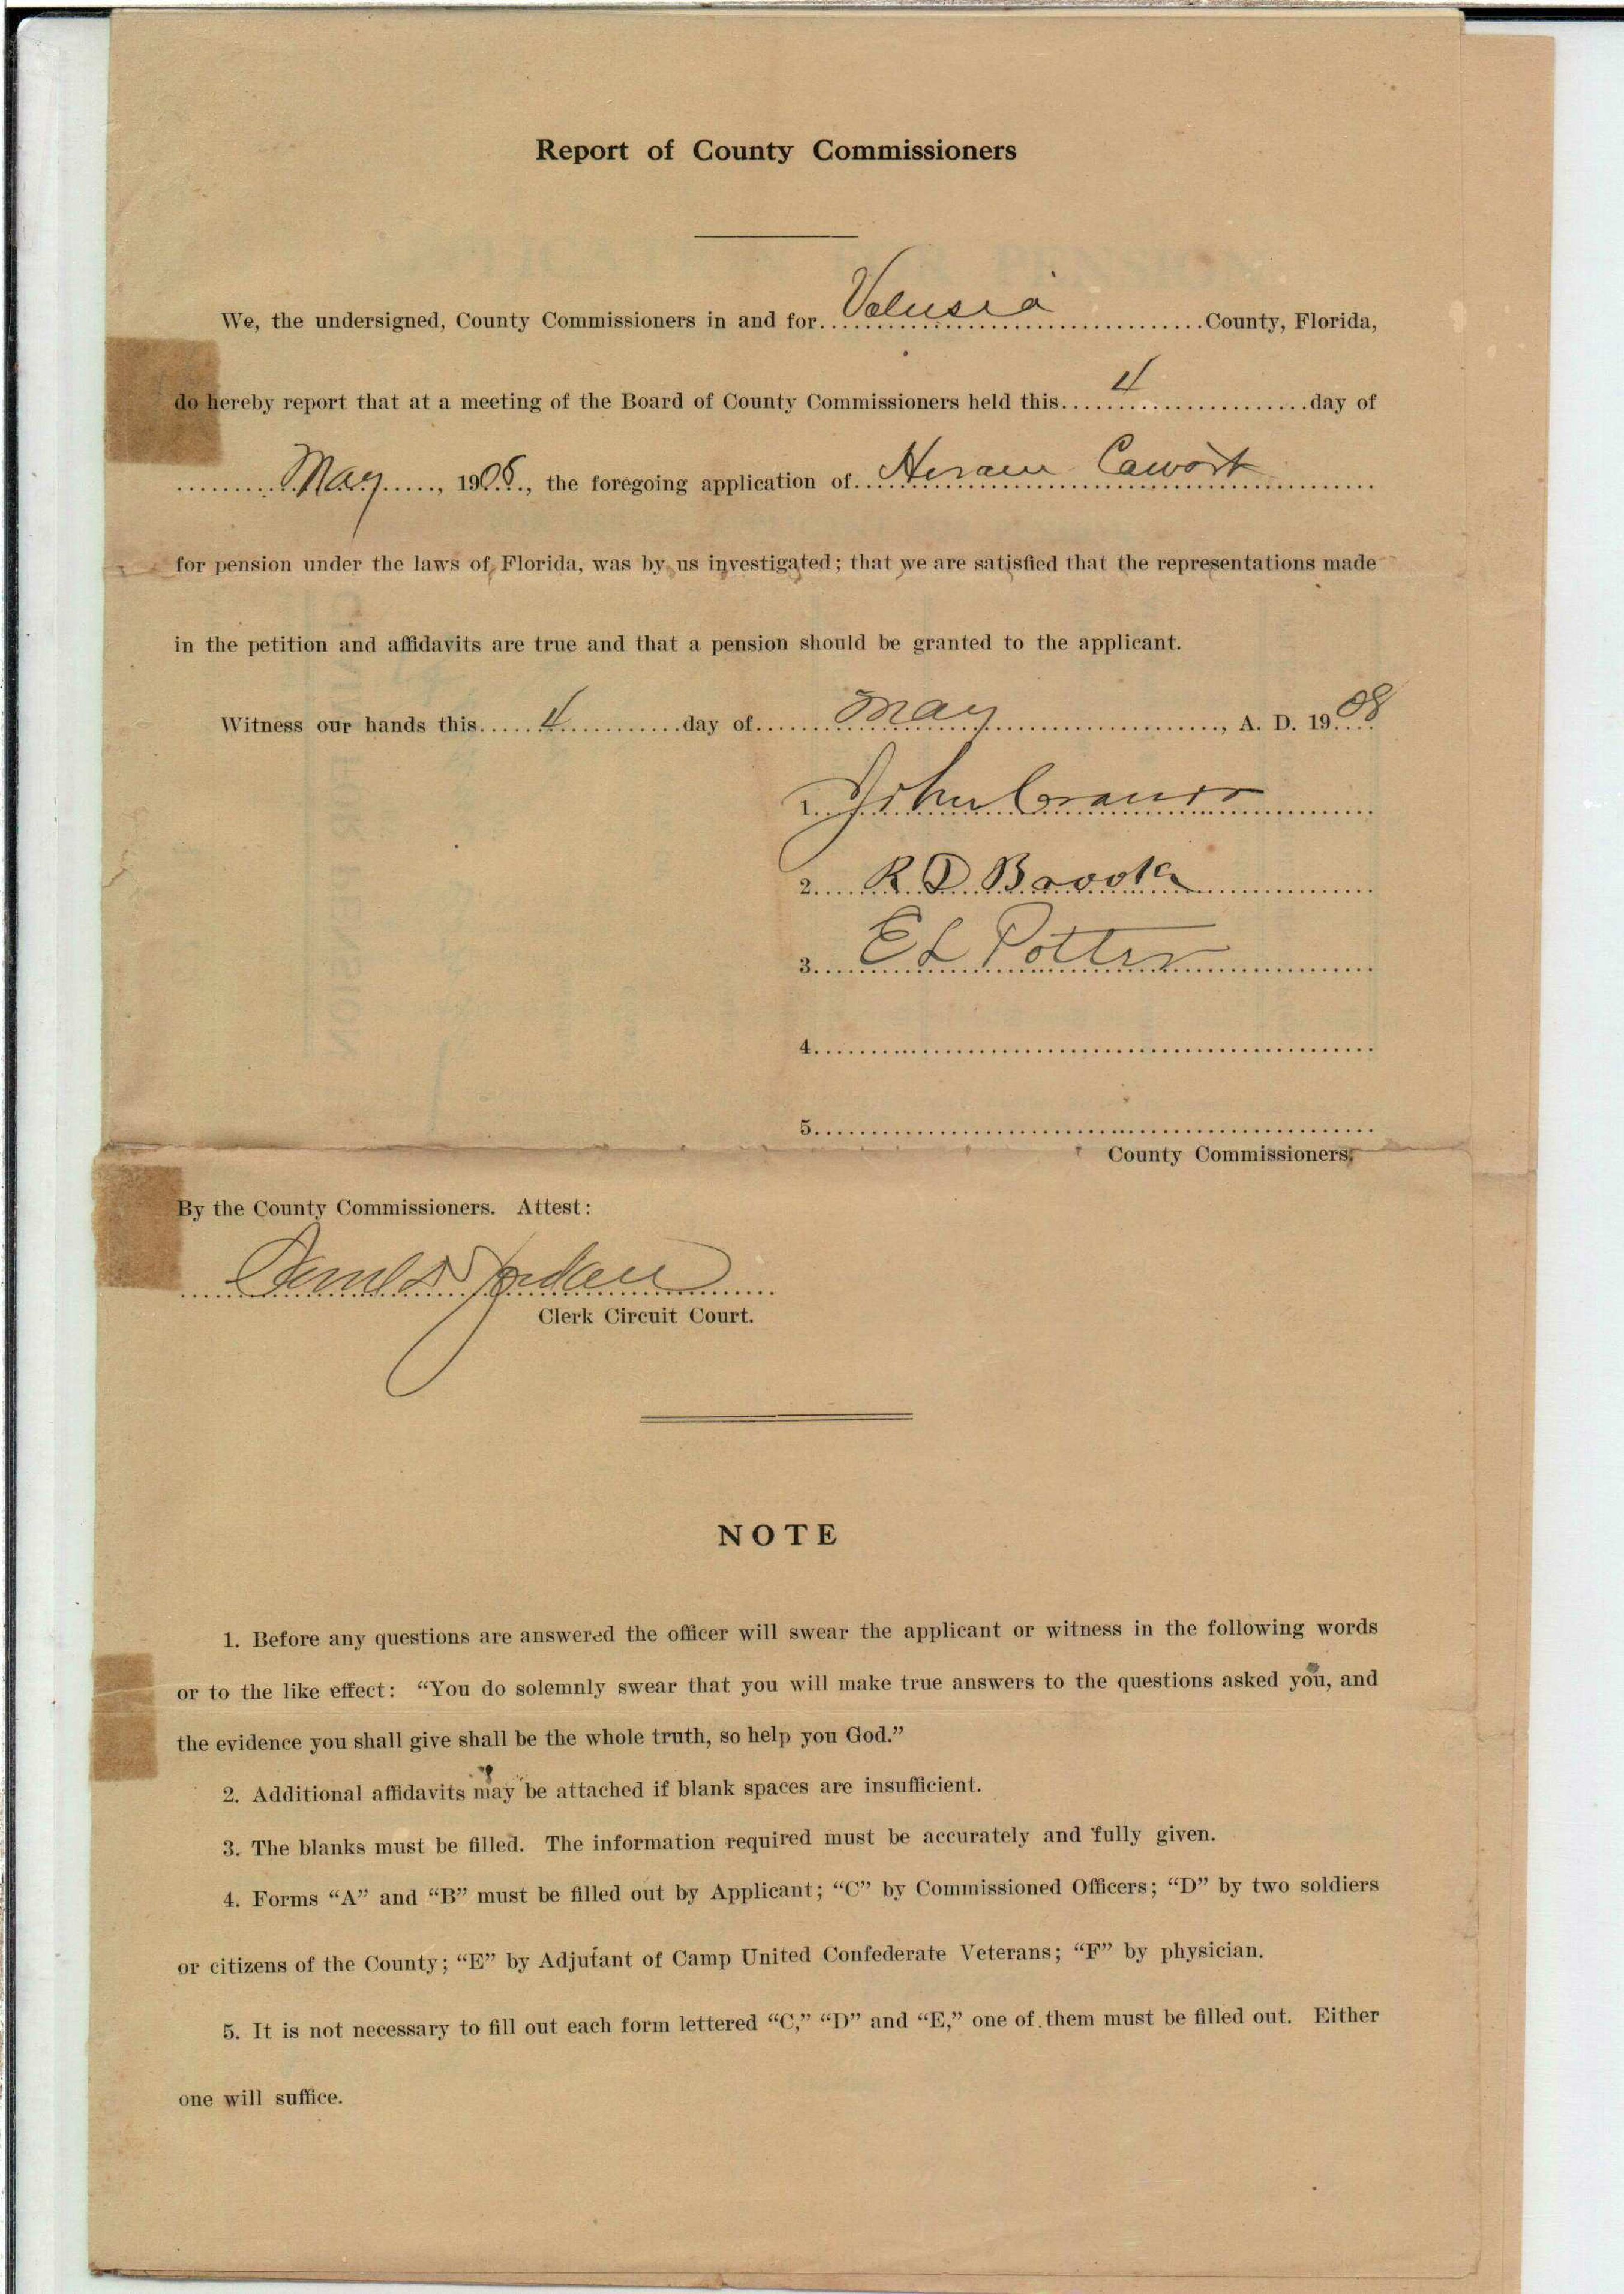 Report of County Commissioners
We, the undersigned, County Commissioners in and for Volusia County, Florida,
do hereby report that at a meeting of the Board of County Commissioners held this 4 day of
May, 1908, the foregoing application of Hiram Cawart
for pension under the laws of Florida, was by us investigated; that we are satisfied that the representations made
in the petition and affidavits are true and that a pension should be granted to the applicant.
Witness our hands this 4 day of May, A. D. 1908
1. John
2. R. D. Brooke
3. E L Potter
4.
5.
County Commissioners.
By the County Commissioners. Attest:
Saml D Jordan
Clerk Circuit Court.
NOTE
1. Before any questions are answered the officer will swear the applicant or witness in the following words
or to the like effect: “You do solemnly swear that you will make true answers to the questions asked you, and
the evidence you shall give shall be the whole truth, so help you God.”
2. Additional affidavits may be attached if blank spaces are insufficient.
3. The blanks must be filled. The information required must be accurately and fully given.
4. Forms “A” and “B” must be filled out by Applicant; “C” by Commissioned Officers; “D” by two soldiers
or citizens of the County; “E” by Adjutant of Camp United Confederate Veterans; “F” by physician.
5. It is not necessary to fill out each form lettered “C,” “D” and “E,” one of them must be filled out. Either
one will suffice.